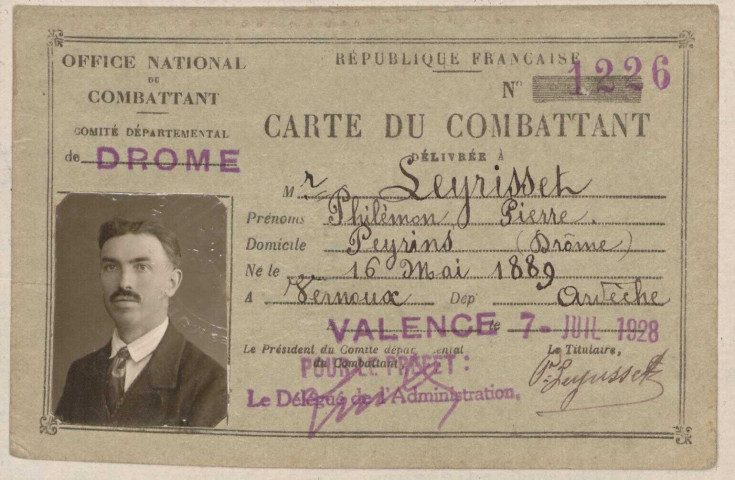 OFFICE NATIONAL
DU
COMBATTANT
COMITÉ DÉPARTEMENTAL
de DROME
RÉPUBLIQUE FRANÇAISE
N° 1226
CARTE DU COMBATTANT
DÉLIVRÉE À
Mr Leyrisset
Prénoms Philémon Pierre.
Domicile Peyrins (Drôme)
Né le 16 Mai 1889
A Vernoux Dep Ardèche
A VALENCE le 7- JUIL 1928
Le Président du Comité départemental
du Combattant,
Le Titulaire,
POUR LE PREFET :
Le Délégué de l'Administration,
P. Leyrisset